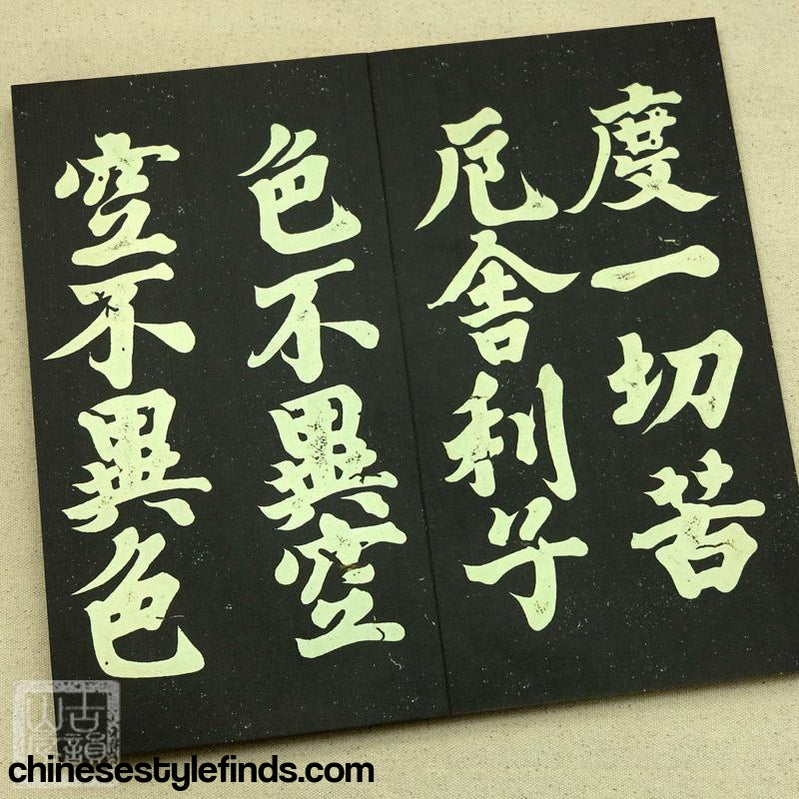 度一切苦
厄舍利子
色不異空
空不異色
古韻
chinesestylefinds.com